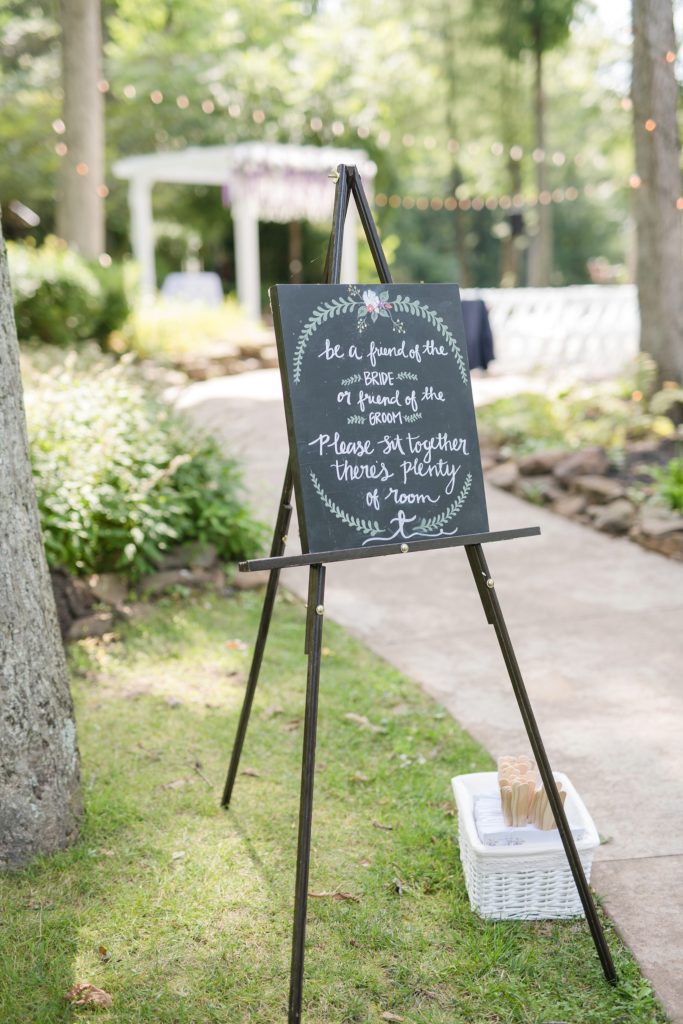 be a friend of the
BRIDE
or friend of the
GROOM
Please sit together
there's plenty
of room